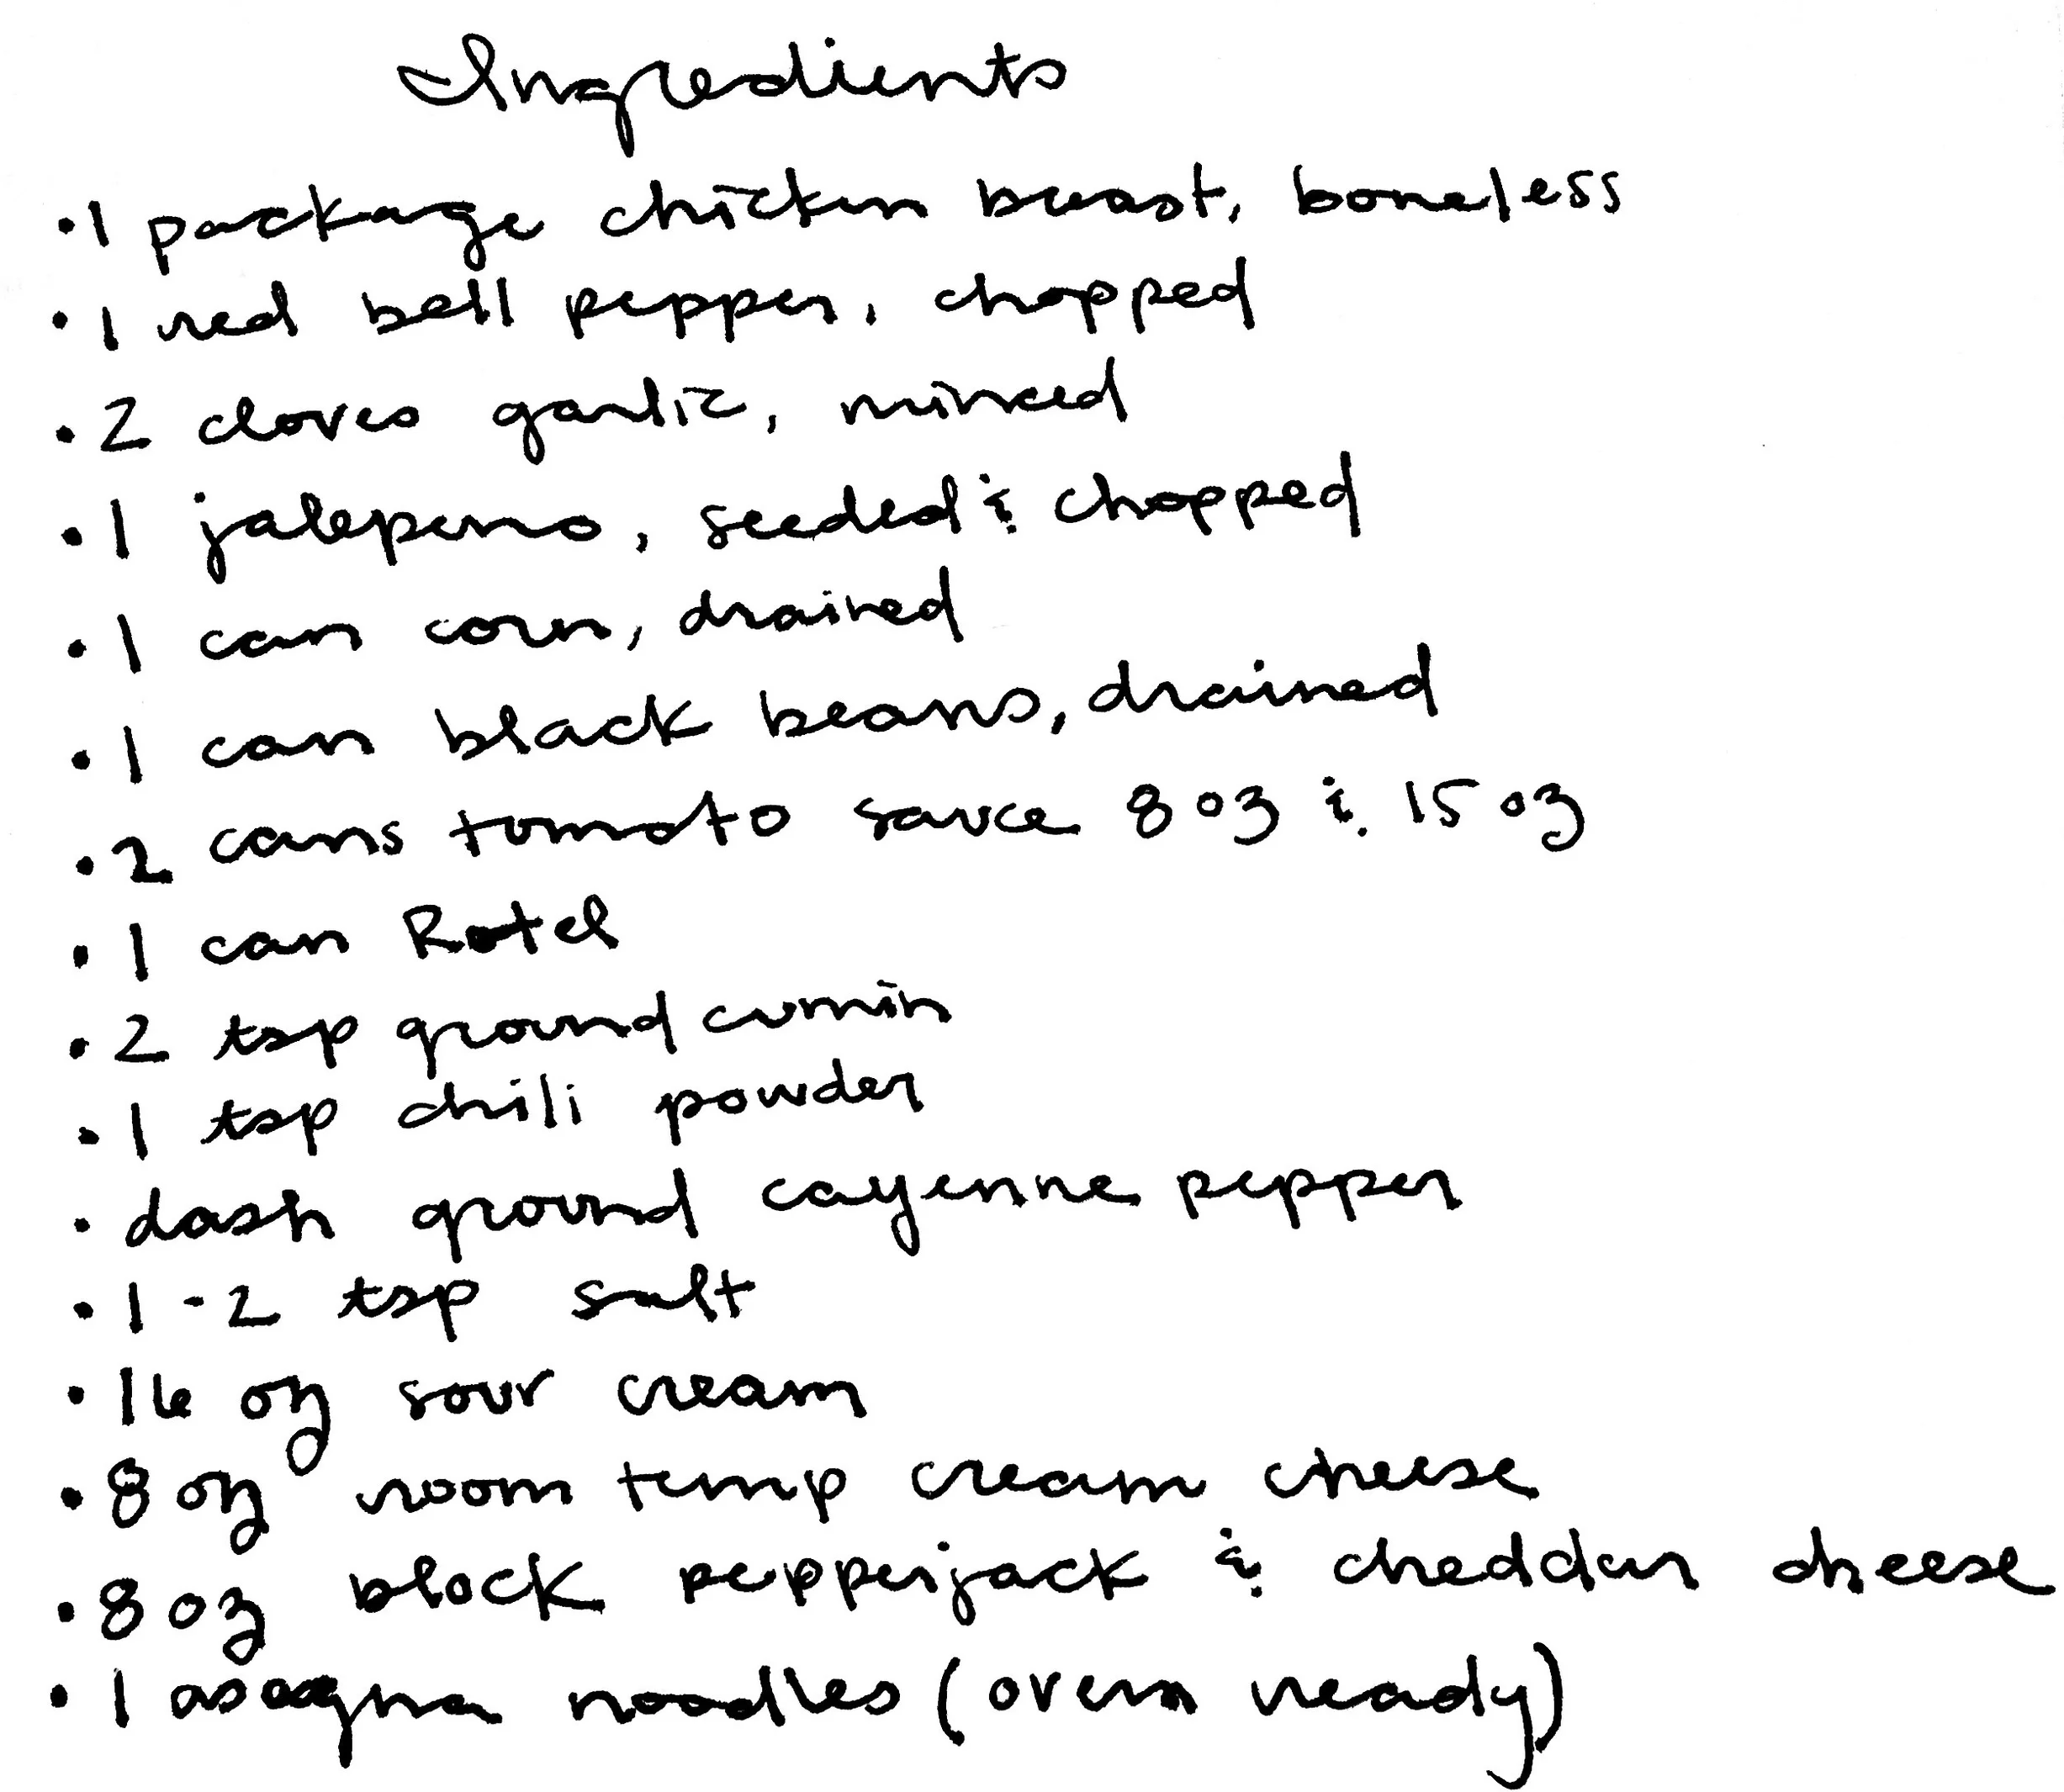 Ingredients
·1 package chicken breast, boneless
·1 red bell pepper, chopped
·2 cloves garlic, minced
·1 jalepeno, seeded & chopped
·1 can corn, drained
·1 can black beans, drained
·2 cans tomato sauce 8 oz & 15 oz
·1 can Rotel
·2 tsp ground cumin
·1 tsp chili powder
·dash ground cayenne pepper
·1-2 tsp salt
·16 oz sour cream
·8 oz room temp cream cheese
·8 oz block pepperjack & cheddar cheese
·lasagna noodles (oven ready)